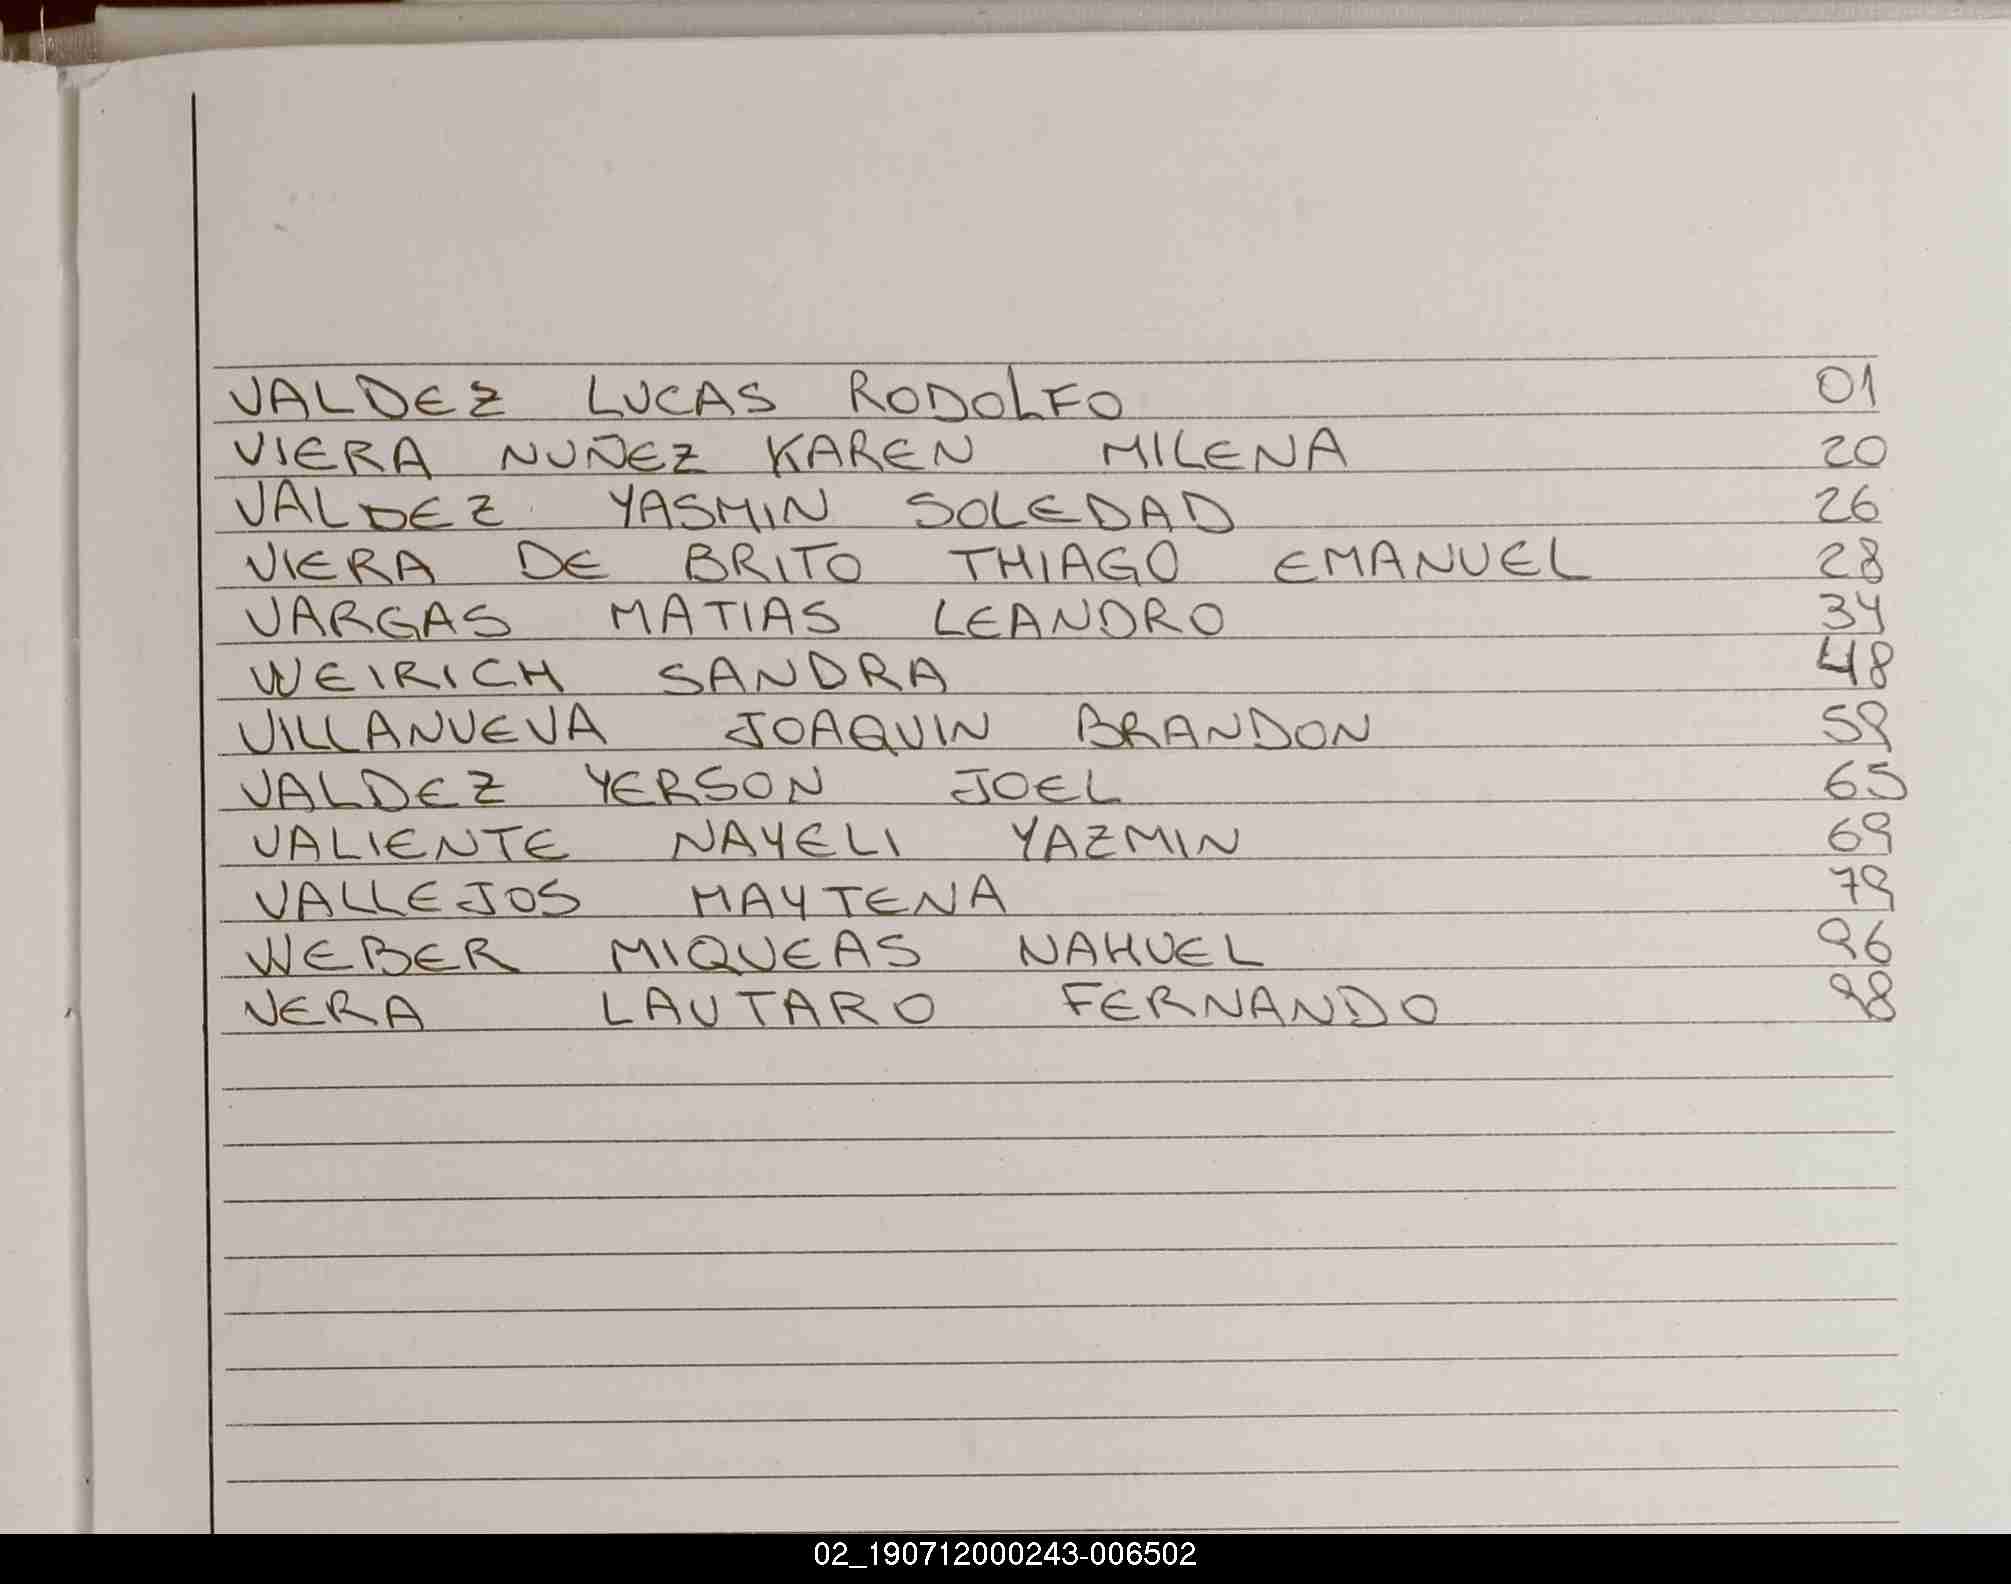 VALDEZ LUCAS RODOLFO 01
VIERA NUÑEZ KAREN MILENA 20
VALDEZ YASMIN SOLEDAD 26
VIERA DE BRITO THIAGO EMANUEL 28
VARGAS MATIAS LEANDRO 34
WEIRICH SANDRA 48
VILLANUEVA JOAQUIN BRANDON 59
VALDEZ YERSON JOEL 65
VALIENTE NAYELI YAZMIN 69
VALLEJOS MAYTENA 79
WEBER MIQUEAS NAHUEL 96
VERA LAUTARO FERNANDO 98
02_190712000243-006502